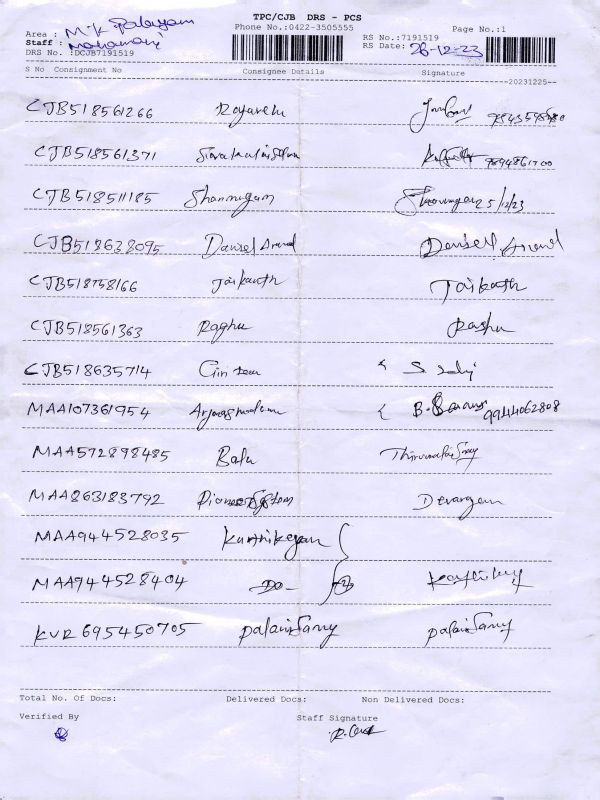 TPC/CJB DRS - PCS
Phone No.:0422-3505555 Page No.:1
Area : M.K. Palayam RS No.:7191519
Staff : RS Date: 26-12-23
DRS No. :DCJB7191519
S No Consignment No Consignee Details Signature
20231225
CJB518561266
CJB518561371 9894861700
CJB518511185 Shanmugam 25/12/23
CJB518638095 Daniel Anand Daniel Anand
CJB518758166 Jaikanth Jaikanth
CJB518561363 Raghu Raghu
CJB518635714
MAA107361954 9944062808
MAA572898485 Balu
MAA863183792 Pioneer System Devaragam
MAA944528035 Karthikeyan
MAA944528404 -Do- (2)
KVR695450705 Palanisamy Palanisamy
Total No. Of Docs: Delivered Docs: Non Delivered Docs:
Verified By Staff Signature